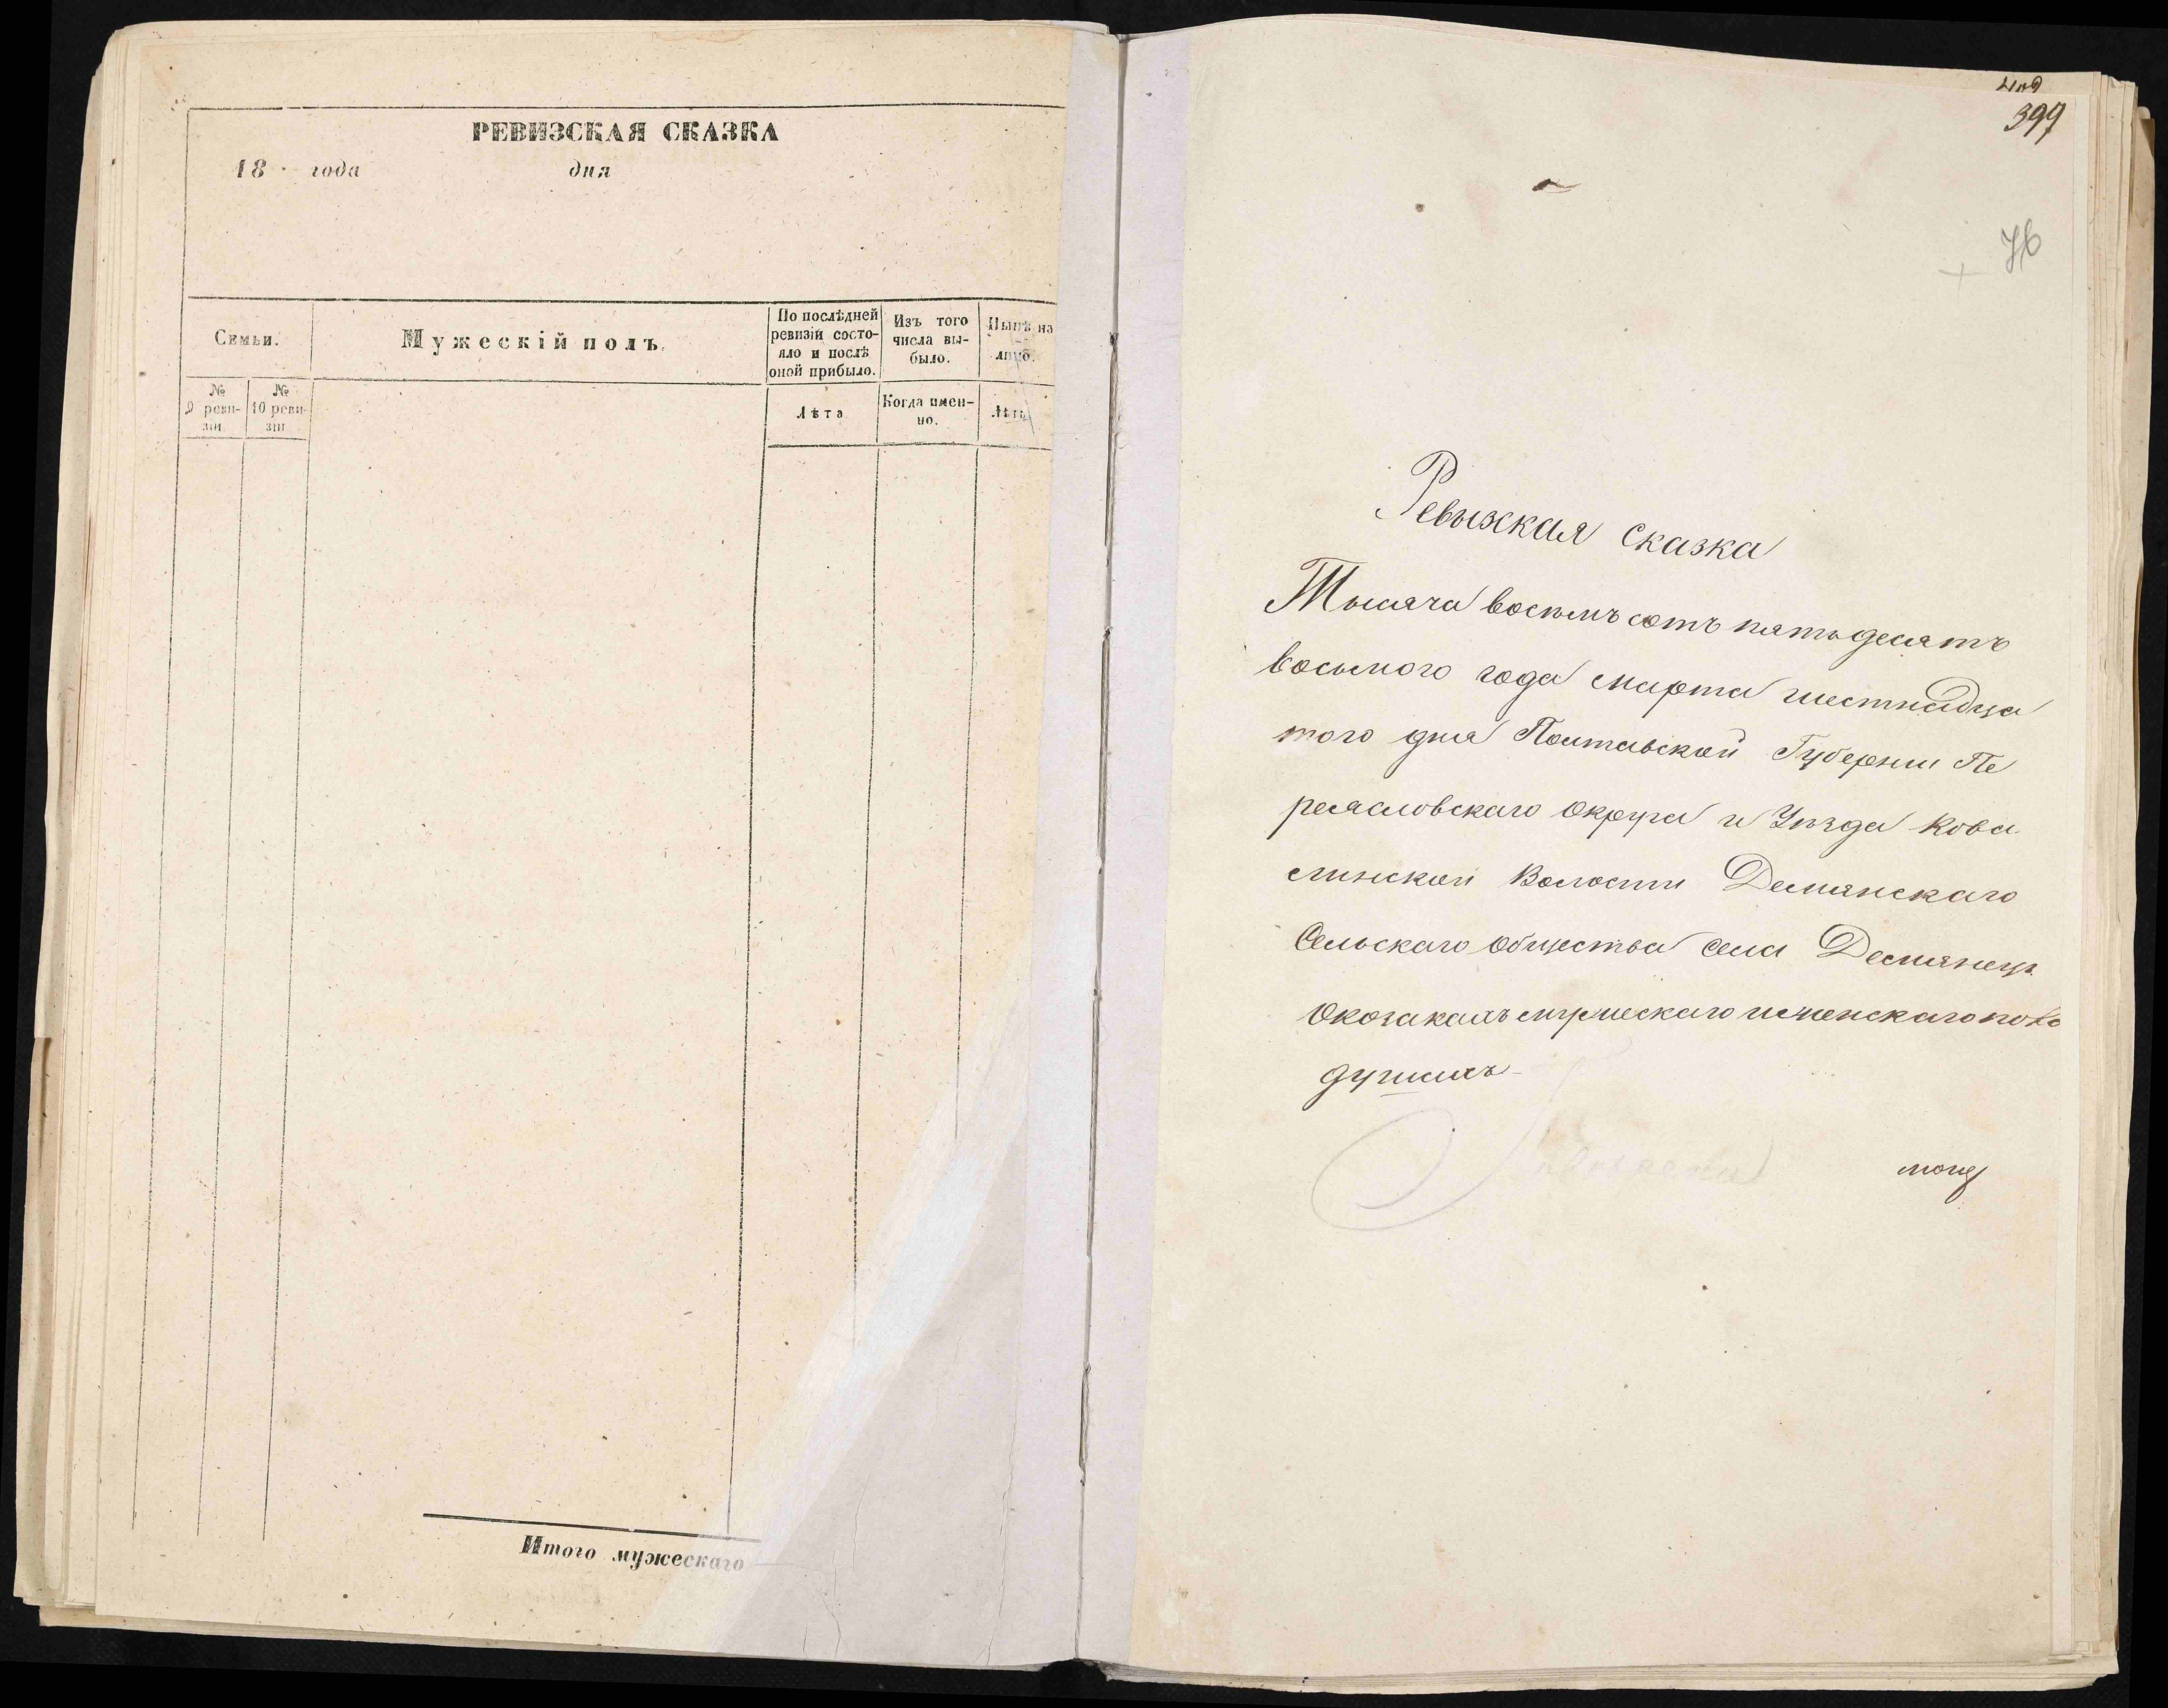 РЕВИЗСКАЯ СКАЗКА
18 года дня
Семьи.
Мужескій полъ.
По послѣдней
ревизіи состо-
яло и послѣ
оной прибыло.
Изъ того
числа вы-
было.
Нынѣ на
лицо.
№
9 реви-
зіи
№
10 реви-
зіи
Лѣта
Когда имен-
но.
Лѣта
Итого мужескаго
399
Ревызкая сказка
Тысяча восѣмъ сотъ пятьдесятъ
восьмого года марта шестнадца
того дня Полтавской Губернии Пе
реясловскаго Округа и Уѣзда Кова
линской Волости Демянскаго
Сельскаго общества села Демянецъ
Окозакахъ мужескаго иженскаго пола
душахъ